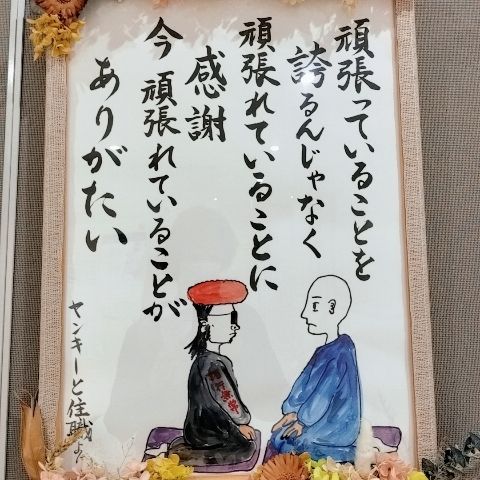 頑張っていることを
誇るんじゃなく
頑張れていることに
感謝
今 頑張れていることが
ありがたい
ヤンキーと住職より